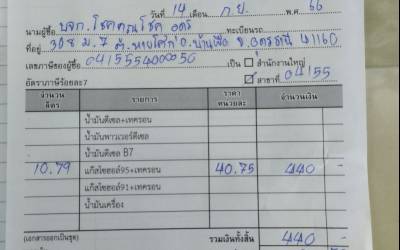 วันที่ 14 เดือน ก.ย. พ.ศ. 66
นามผู้ซื้อ บจก. โชคคูณโชค อุดร ทะเบียนรถ
ที่อยู่ 308 ม.7 ต. หายโศก อ. บ้านผือ จ. อุดรธานี 41160
เลขภาษีของผู้ซื้อ 0415554000050 เป็น สำนักงานใหญ่
อัตราภาษีร้อยละ7 สาขาที่ 04155
จำนวน ลิตร รายการ ราคา หน่วยละ จำนวนเงิน
น้ำมันดีเซล+เทครอน
น้ำมันพาวเวอร์ดีเซล
น้ำมันดีเซล B7
10.79 แก๊สโซฮอล์95+เทครอน 40.75 440 -
แก๊สโซฮอล์91+เทครอน
น้ำมันเครื่อง
(เอกสารออกเป็นชุด) รวมเงินทั้งสิ้น 440 -